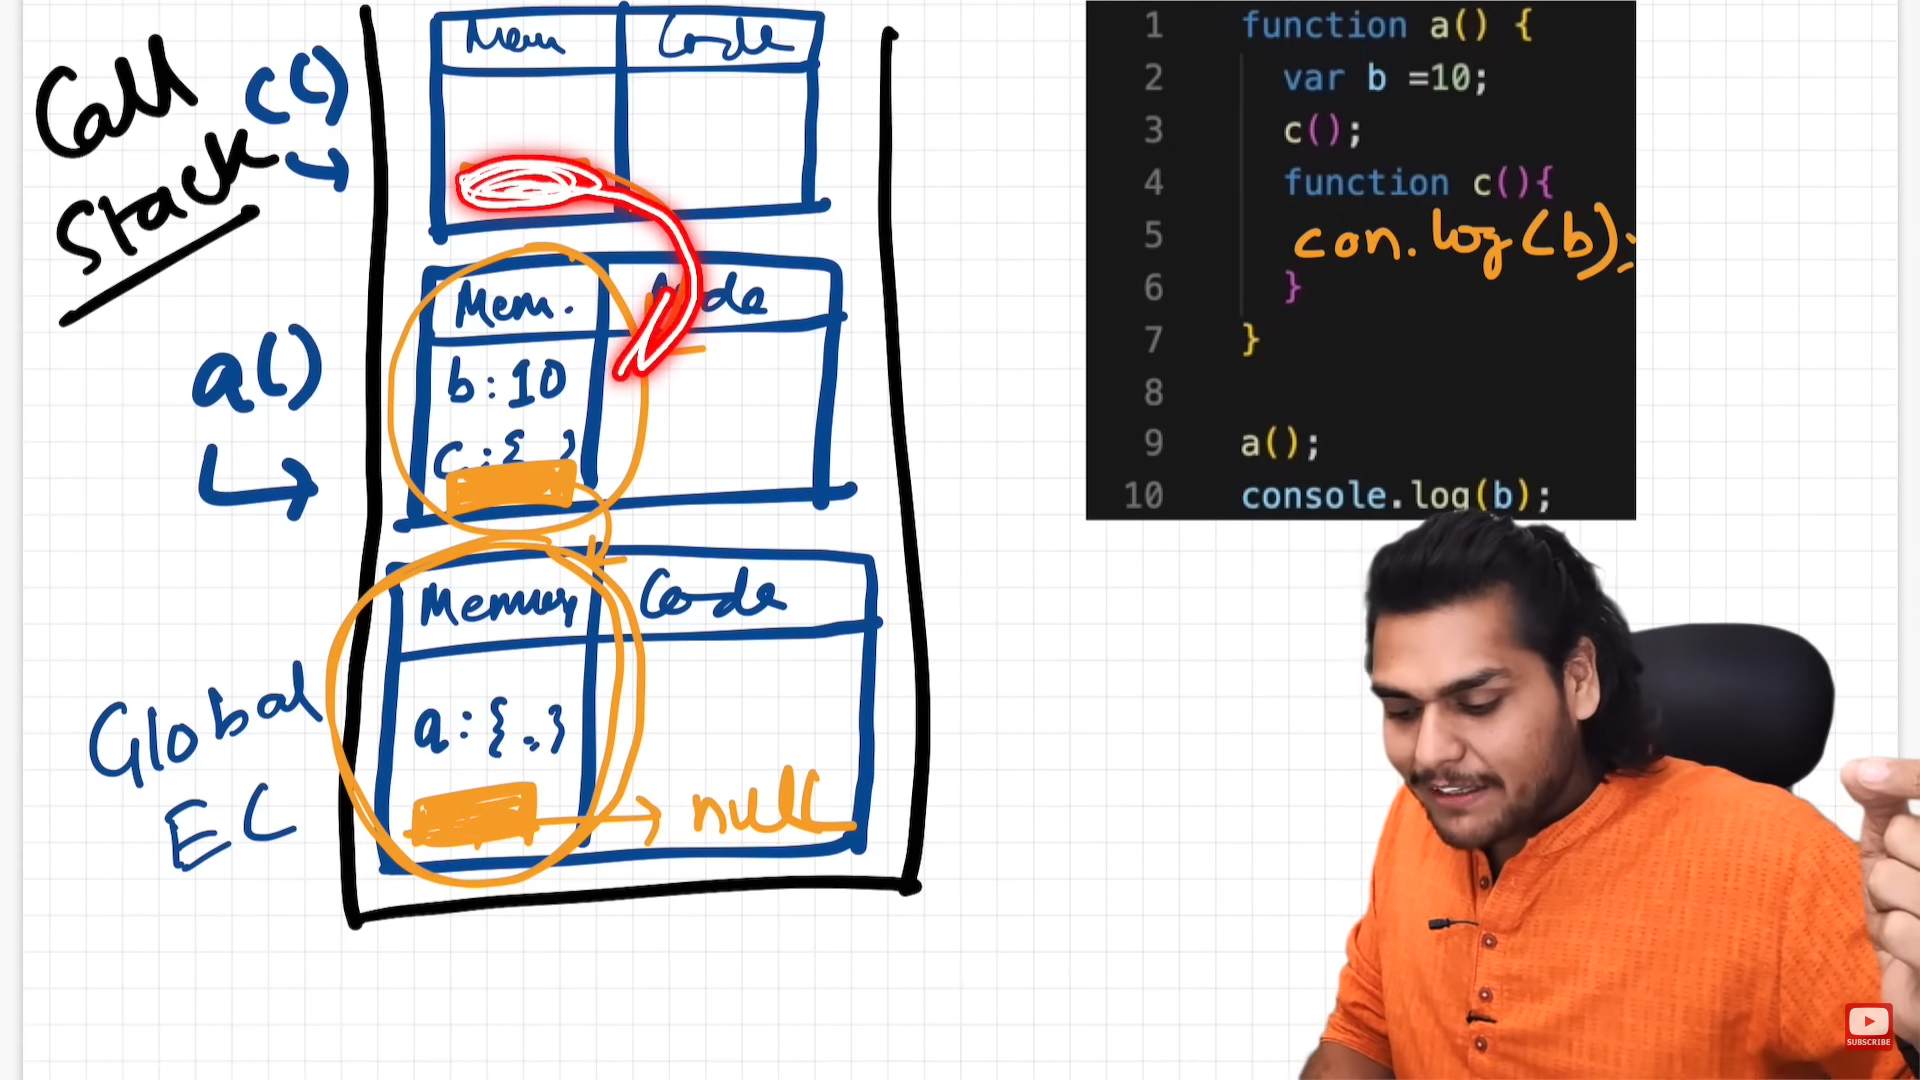 Call
Stack
c()
Mem Code
a()
Mem. Code
b:10
c:{ }
Global
EC
Memory Code
a:{..}
null
1 function a() {
2 var b =10;
3 c();
4 function c(){
5 con.log(b);
6 }
7 }
8
9 a();
10 console.log(b);
SUBSCRIBE